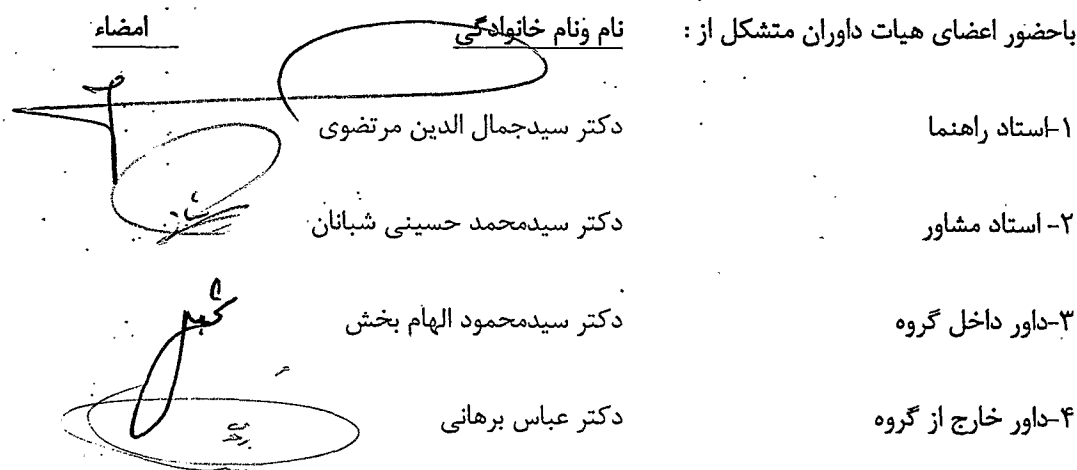 باحضور اعضای هیات داوران متشکل از : نام ونام خانوادگی امضاء
۱-استاد راهنما دکتر سیدجمال الدین مرتضوی
۲- استاد مشاور دکتر سیدمحمد حسینی شبانان
۳-داور داخل گروه دکتر سیدمحمود الهام بخش
۴-داور خارج از گروه دکتر عباس برهانی